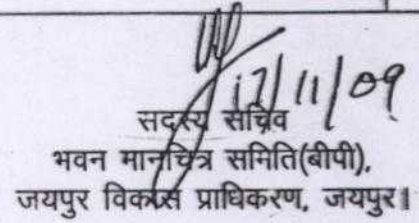 17/11/09
सदस्य सचिव
भवन मानचित्र समिति(बीपी),
जयपुर विकास प्राधिकरण, जयपुर।